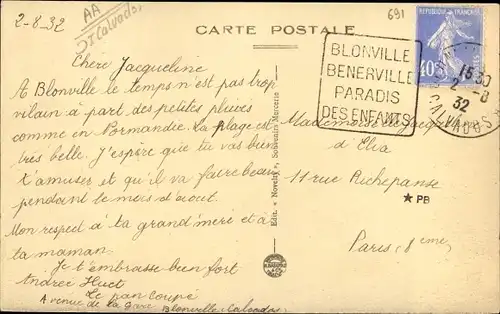 2-8-32
AA
Calvados
CARTE POSTALE
691
REPUBLIQUE FRANÇAISE
40c
BLONVILLE
BENERVILLE
PARADIS
DES ENFANTS
15 30
2 -8
32
CALVADOS
Chère Jacqueline
A Blonville le temps n'est pas trop
vilain à part des petites pluies
comme en Normandie. La plage est
très belle. J'espère que tu vas bien
t'amuser et qu'il va faire beau
pendant le mois d'aout.
Mon respect à ta grand'mère et à
ta maman.
Je t'embrasse bien fort
Andrée Huet
Le pan coupé
Avenue de la gare Blonville Calvados
Edit. « Novelty », Souvenirs Mercerie
Mademoiselle Jacqueline
d'Elia
11 rue Richepanse
★ PB
Paris 8eme